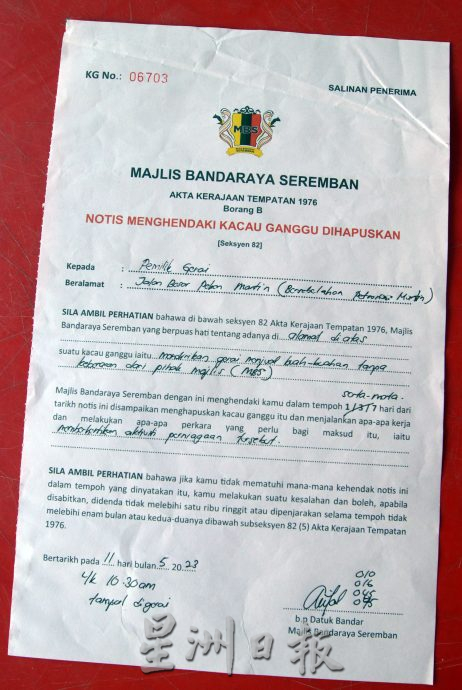 KG No.: 06703
SALINAN PENERIMA
MBS
MAJLIS BANDARAYA SEREMBAN
AKTA KERAJAAN TEMPATAN 1976
Borang B
NOTIS MENGHENDAKI KACAU GANGGU DIHAPUSKAN
[Seksyen 82]
Kepada : Pemilik Gerai
Beralamat : Jalan Besar Pekan Mantin (Bersebelahan Mantin)
SILA AMBIL PERHATIAN bahawa di bawah seksyen 82 Akta Kerajaan Tempatan 1976, Majlis
Bandaraya Seremban yang berpuas hati tentang adanya di alamat di atas
suatu kacau ganggu iaitu mendirikan gerai menjual buah-buahan tanpa
kebenaran dari pihak majlis (MBS)
serta-merta
Majlis Bandaraya Seremban dengan ini menghendaki kamu dalam tempoh 1/3/7 hari dari
tarikh notis ini disampaikan menghapuskan kacau ganggu itu dan menjalankan apa-apa kerja
dan melakukan apa-apa perkara yang perlu bagi maksud itu, iaitu
memberhentikan aktiviti perniagaan tersebut.
SILA AMBIL PERHATIAN bahawa jika kamu tidak mematuhi mana-mana kehendak notis ini
dalam tempoh yang dinyatakan itu, kamu melakukan suatu kesalahan dan boleh, apabila
disabitkan, didenda tidak melebihi satu ribu ringgit atau dipenjarakan selama tempoh tidak
melebihi enam bulan atau kedua-duanya dibawah subseksyen 82 (5) Akta Kerajaan Tempatan
1976.
Bertarikh pada 11 hari bulan 5 2023
10.30am
tampal di gerai
010
016
045
b.p Datuk Bandar
Majlis Bandaraya Seremban
星洲日報